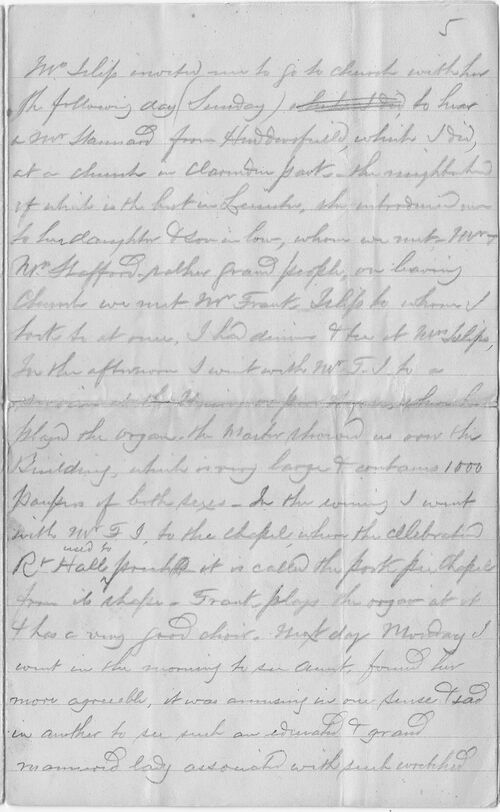 5
Mrs Islip invited me to go to church with her
the following day (Sunday) to hear
a Mr Stannard from Huddersfield, which I did,
at a church in Clarendon park - the neighborhood
of which is the best in Leicester, she introduced me
to her daughter & son in low, whom we met - Mr &
Mrs Stafford, rather grand people, on leaving
Church we met Mr Frank Islip to whom I
took to at once, I had dinner & tea at Mrs Islips,
In the afternoon I went with Mr F. I. to a
service at the Union or poor House, where he
played the organ. the Master showed us over the
Building, which is very large & contains 1000
paupers of both sexes - In the evening I went
with Mr F I, to the chapel, where the cellebrated
Rt Hall used to preach - it is called the pork pie Chapel
from its shape - Frank plays the organ at it
& has a very good choir. Next day Monday I
went in the morning to see Aunt, found her
more agreeable, it was amusing in one sense & sad
in another to see such an educated & grand
mannered lady associated with such wretched